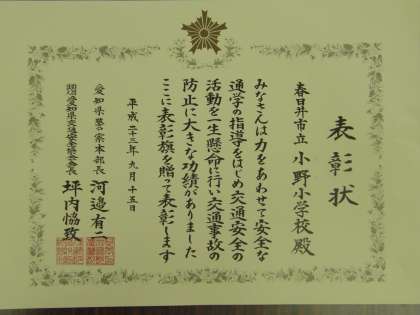 表彰状
春日井市立 小野小学校殿
みなさんは力をあわせて安全な
通学の指導をはじめ交通安全の
活動を一生懸命に行い交通事故の
防止に大きな功績がありました
ここに表彰旗を贈って表彰します
平成二十三年九月十五日
愛知県警察本部長 河邉有二
愛知県交通安全協会会長 坪内恊致